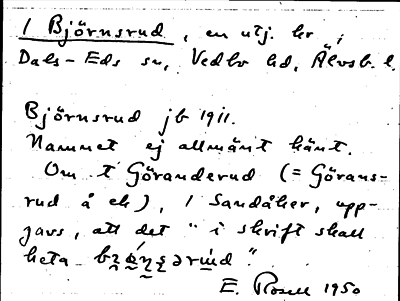 1 Björnsrud, en utj. hr i
Dals-Eds sn, Vedbo hd, Älvsb. l.
Björnsrud jb 1911.
Namnet ej allmänt känt.
Om t Göranderud (= Görans-
rud å ek), 1 Sandåker, upp-
gavs, att det "i skrift skall
heta
E. Rosell 1950